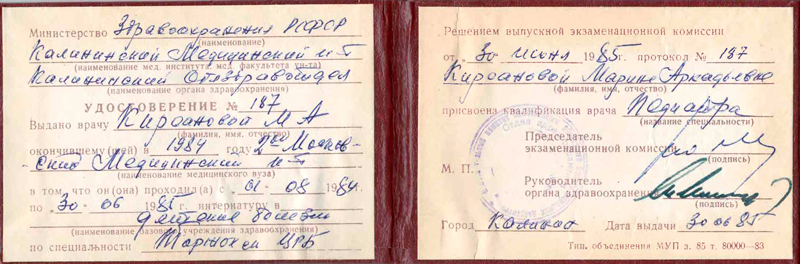 Министерство Здравоохранения РСФСР
(наименование)
Калининский Медицинский и-т
(наименование мед. института, мед. факультета ун-та)
Калининский Облздравотдел
(наименование органа здравоохранения)
УДОСТОВЕРЕНИЕ № 187
Выдано врачу Кирсановой М А
(фамилия, имя, отчество)
окончившему(шей) в 1984 году 2ой Москов-
ский Медицинский и-т
(наименование медицинского вуза)
в том, что он(она) проходил(а) с 01-08 1984
по 30-06 1985 г. интернатуру в
детские болезни
(наименование базового учреждения здравоохранения)
по специальности ЦРБ
Решением выпускной экзаменационной комиссии
от 30 июня 1985 г. протокол № 187
Кирсановой Марине Аркадьевне
(фамилия, имя, отчество)
присвоена квалификация врача Педиатра
(название специальности)
Председатель
экзаменационной комиссии
(подпись)
М. П.
Руководитель
органа здравоохранения
(подпись)
Город Калинин Дата выдачи 30 06 85
Тип. объединения МУП з. 85 т. 80000—83